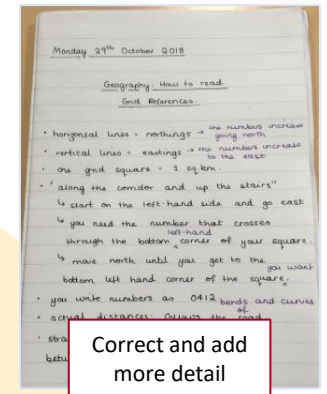 Monday 29th October 2018
Geography: How to read
Grid References.
• horizontal lines = northings → the numbers increase going north
• vertical lines = eastings → the numbers increase to the east
• one grid square = 1 sq km.
• "along the corridor and up the stairs"
↳ start on the left-hand side and go east
↳ you need the number that crosses
through the bottom left-hand corner of your square.
↳ move north until you get to the
bottom left hand corner of the square you want.
• you write numbers as 0412
• actual distances: follows the road bends and curves
• stra
betw
Correct and add
more detail